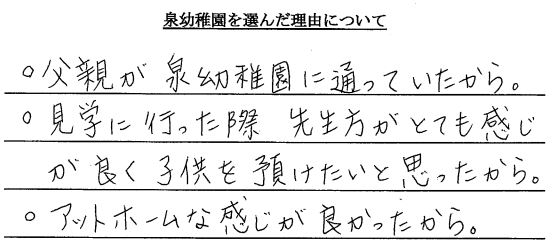 泉幼稚園を選んだ理由について
○父親が泉幼稚園に通っていたから。
○見学に行った際 先生方がとても感じ
が良く子供を預けたいと思ったから。
○アットホームな感じが良かったから。